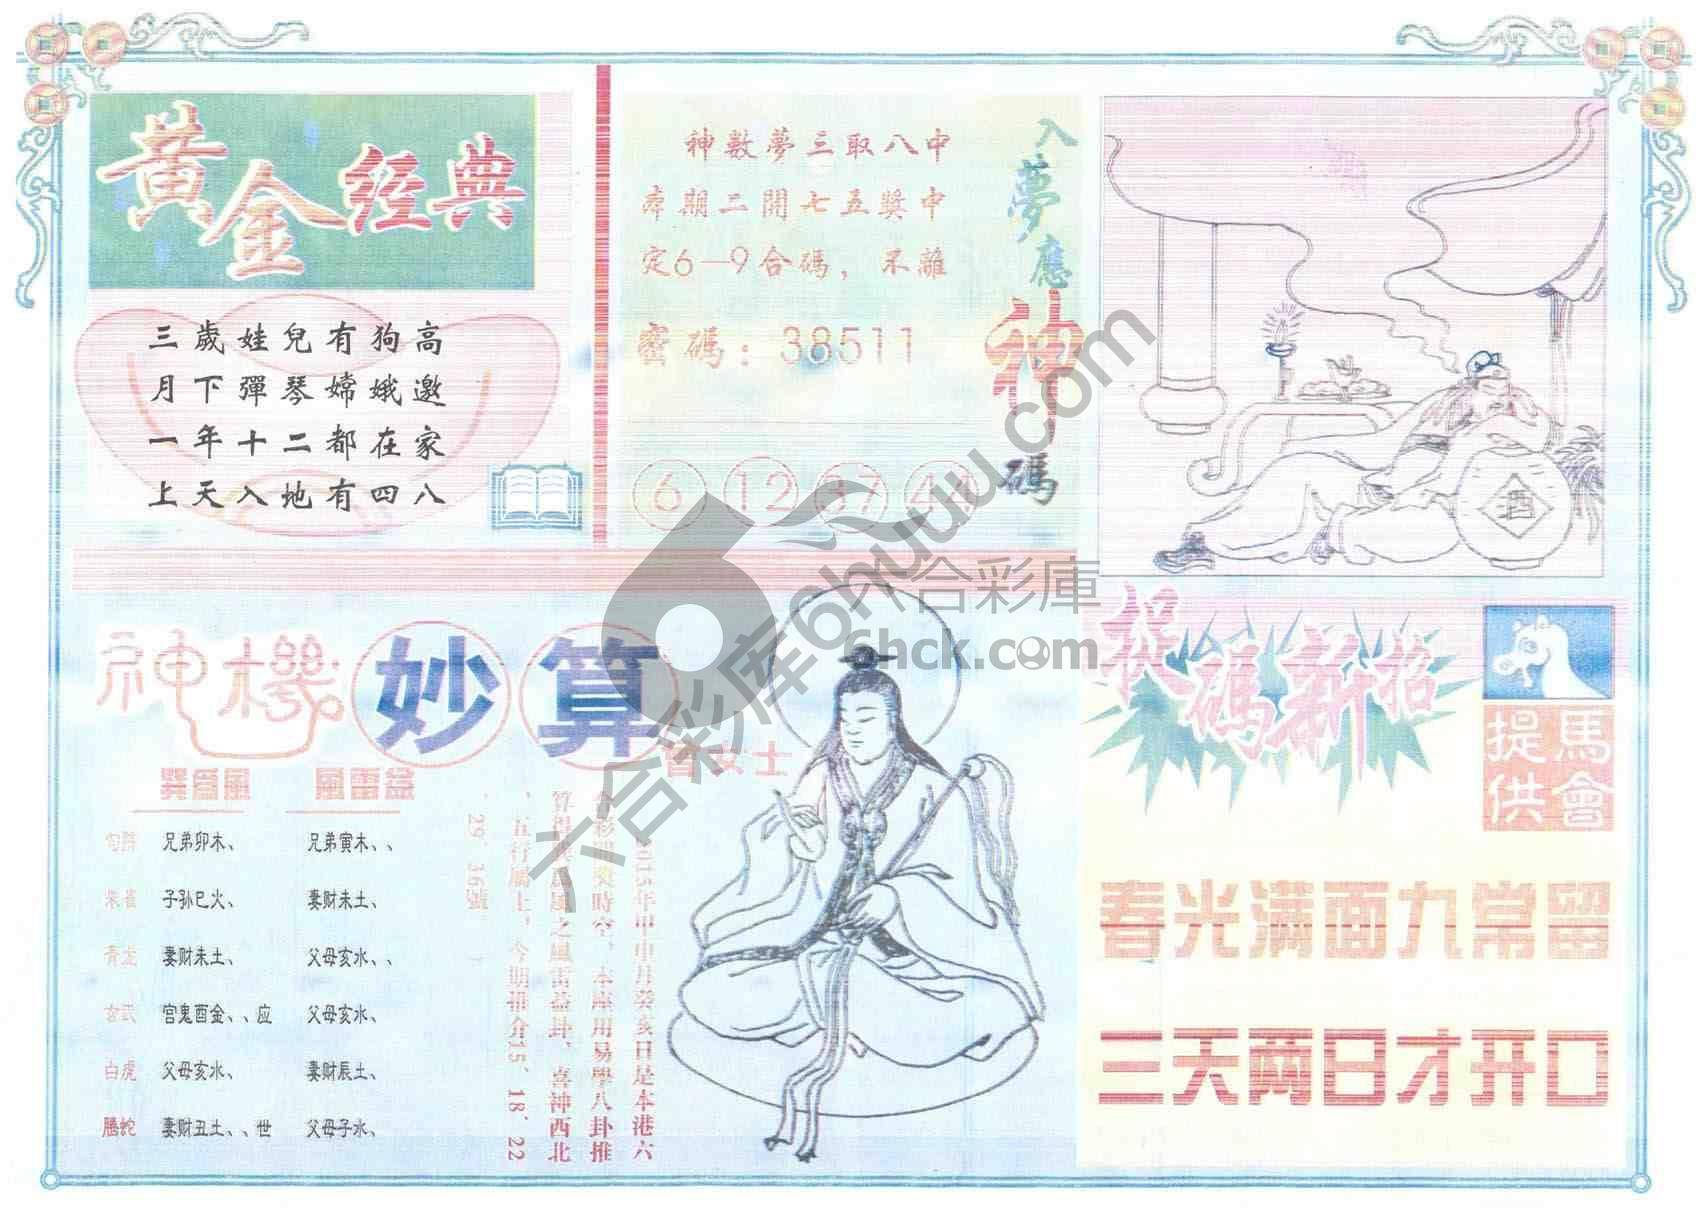 黃金經典
三歲娃兒有狗高
月下彈琴嫦娥邀
一年十二都在家
上天入地有四八
入夢應神碼
神數夢三取八中
本期二開七五獎中
定6—9合碼，不離
密碼：38511
6 12 37
酒
六合彩库6huuu.com
六合彩庫
6hck.com
神機妙算
曾女士
巽爲風 風雷益
勾陈 兄弟卯木、 兄弟寅木、、
朱雀 子孙巳火、 妻财未土、
青龙 妻财未土、 父母亥水、、
玄武 官鬼酉金、、应 父母亥水、
白虎 父母亥水、 妻财辰土、
腾蛇 妻财丑土、、世 父母子水、
2015年甲申月癸亥日是本港六
合彩開獎時空，本座用易學八卦推
算得巽爲風之風雷益卦、喜神西北
、五行屬土，今期推介15、18、22
、29、36號。
捉碼新招
馬會
提供
春光满面九常留
三天两日才开口